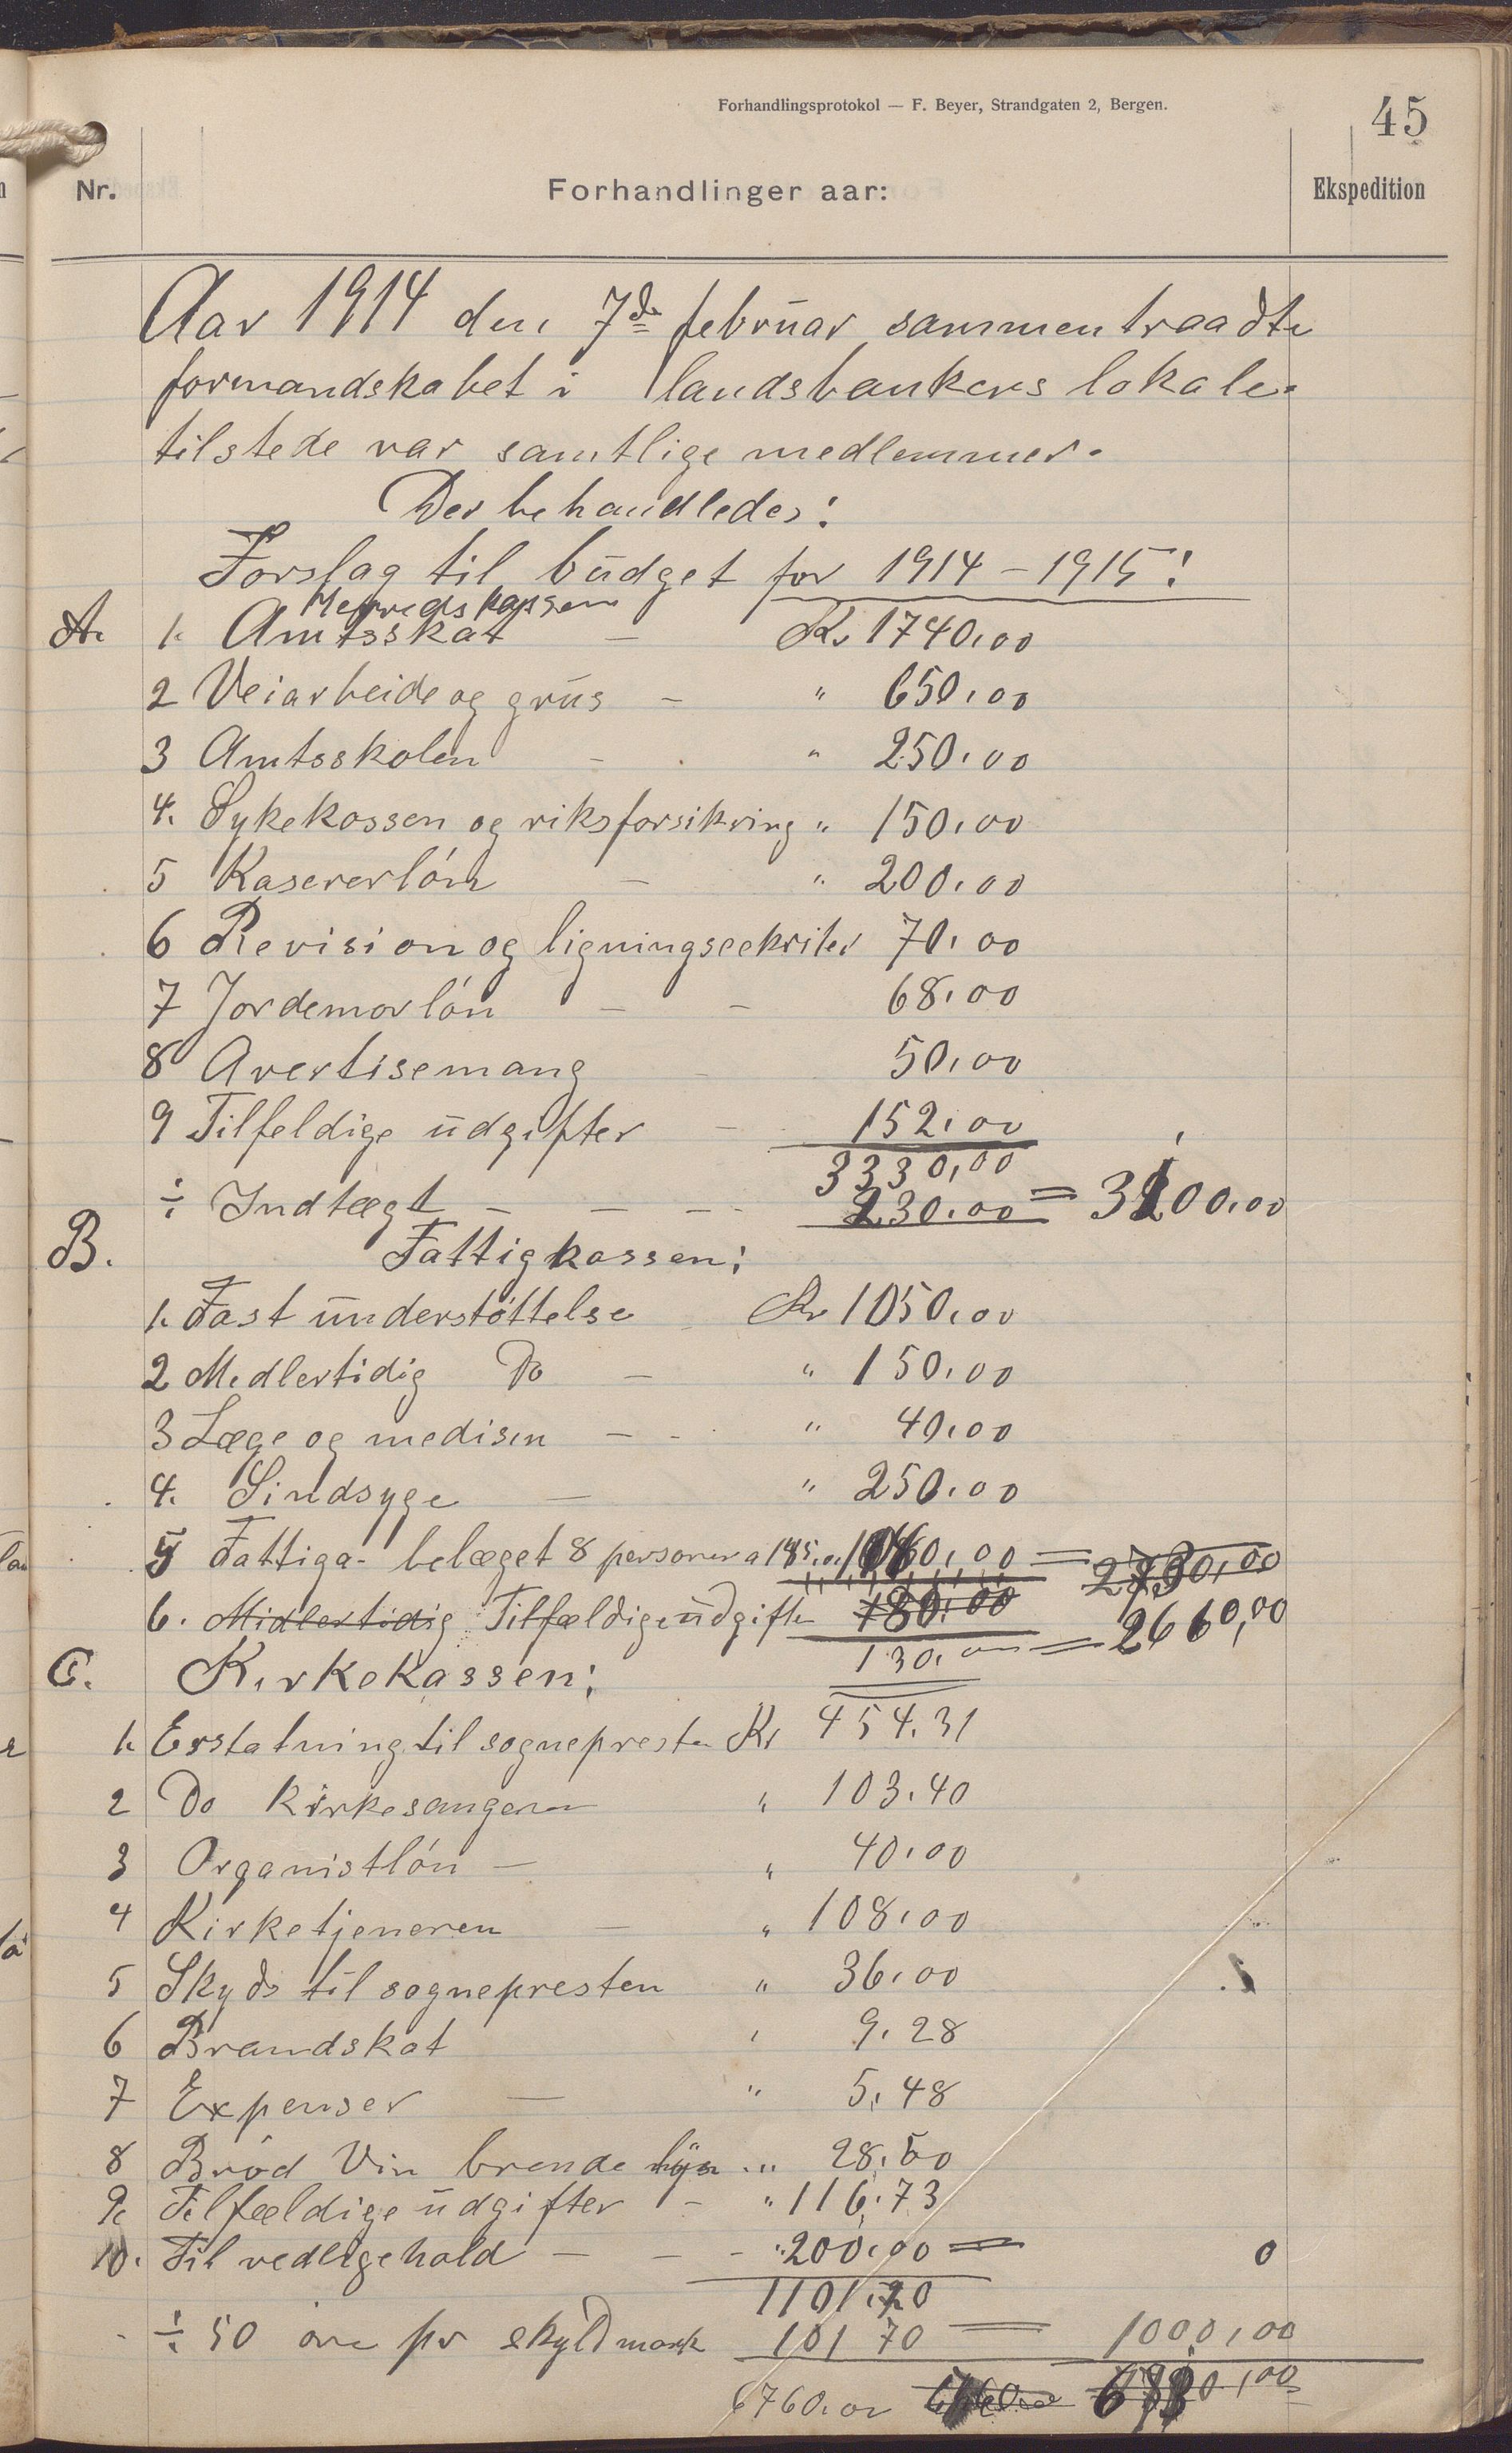 Forhandlingsprotokol — F. Beyer, Strandgaten 2, Bergen.
45
Nr. Forhandlinger aar: Ekspedition
Aar 1914 den 7de februar sammentraadte
formandskabet i landsbankens lokale.
tilstede var samtlige medlemmer.
Der behandledes:
Forslag til budget for 1914-1915:
Herredskassen
A. 1. Amtsskat — Kr 1740,00
2 Veiarbeide og grus — " 650,00
3 Amtsskolen — " 250,00
4. Sykekassen og riksforsikring " 150,00
5 Kasererlón — " 200,00
6 Revision og ligningseekriter 70,00
7 Jordemorlón — — 68,00
8 Avertisemang — 50,00
9 Tilfeldige udgifter — 152,00
3330,00
÷ Indtægt — — — 230,00 = 3100,00
B. Fattigkassen:
1. Fast understóttelse Kr 1050,00
2 Medlertidig Do — " 150,00
3 Læge og medisin — - " 40,00
4. Sindsyge — " 250,00
5 Fattiga- belæget 8 personer a 1040,00 = 2730,00
6. Midlertidig Tilfældige udgifter 180,00
130,00 = 2660,00
C. Kirkekassen:
1. Erstatning til sognepresten Kr 454,31
2 Do Kirkesangeren " 103,40
3 Organistlón — " 40,00
4 Kirketjeneren — " 108,00
5 Skyds til sognepresten " 36,00
6 Brandskat " 9,28
7 Expenser — " 5,48
8 Bród Vin brende " 28,50
9. Tilfældige udgifter - " 116,73
10. Til vedligehold — — - " 200,00 = 0
1101,70
÷ 50 óre pr skyldmark 101 70 = 1000,00
6760,00